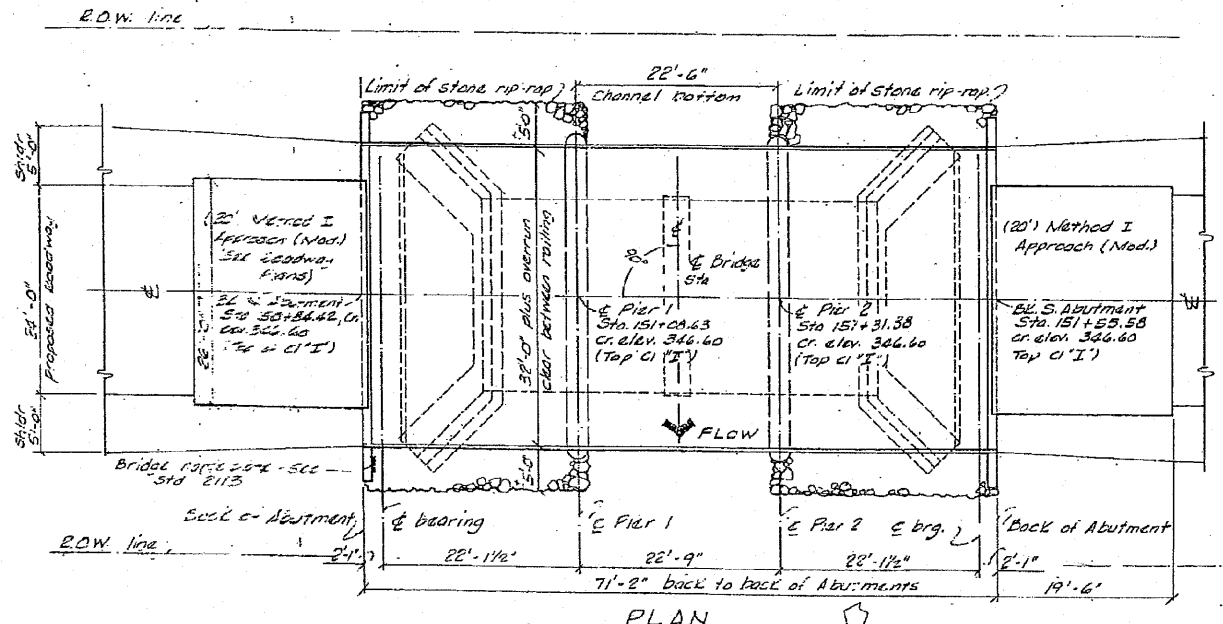 R.O.W. line
22'-6"
Limit of stone rip-rap
Channel bottom
Limit of stone rip-rap
5'-0"
Shldr
5'-0"
24'-0"
proposed roadway
Shldr
5'-0"
26'-0"
(20' Method I
Approach (Mod.)
See roadway
Plans)
Abutment
346.60
(Top Cl "I")
32'-0" plus overrun
clear between railing
90°
℄ Bridge
Sta
℄ Pier 1
Sta. 151+08.63
cr. elev. 346.60
(Top Cl "I")
℄ Pier 2
Sta 151+31.38
cr. elev. 346.60
(Top Cl "I")
(20') Method I
Approach (Mod.)
Bk. S. Abutment
Sta. 151+55.58
cr. elev. 346.60
Top Cl "I")
℄
FLOW
5'-0"
Bridge name - see
Std 2113
Back of Abutment
℄ bearing
℄ Pier 1
℄ Pier 2
℄ brg.
Back of Abutment
R.O.W. line
2'-1"
22'-1½"
22'-9"
22'-1½"
2'-1"
71'-2" back to back of Abutments
19'-6"
PLAN